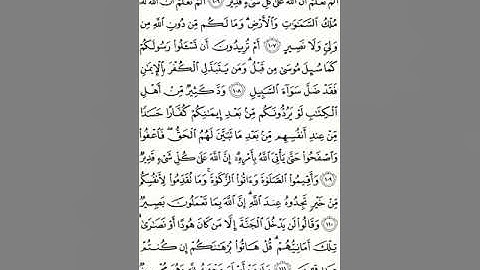 أَلَمْ تَعْلَمْ أَنَّ اللَّهَ عَلَىٰ كُلِّ شَيْءٍ قَدِيرٌ ﴿١٠٦﴾ أَلَمْ تَعْلَمْ أَنَّ اللَّهَ لَهُ
مُلْكُ السَّمَاوَاتِ وَالْأَرْضِ ۗ وَمَا لَكُم مِّن دُونِ اللَّهِ مِن
وَلِيٍّ وَلَا نَصِيرٍ ﴿١٠٧﴾ أَمْ تُرِيدُونَ أَن تَسْأَلُوا رَسُولَكُمْ
كَمَا سُئِلَ مُوسَىٰ مِن قَبْلُ ۗ وَمَن يَتَبَدَّلِ الْكُفْرَ بِالْإِيمَانِ
فَقَدْ ضَلَّ سَوَاءَ السَّبِيلِ ﴿١٠٨﴾ وَدَّ كَثِيرٌ مِّنْ أَهْلِ
الْكِتَابِ لَوْ يَرُدُّونَكُم مِّن بَعْدِ إِيمَانِكُمْ كُفَّارًا حَسَدًا
مِّنْ عِندِ أَنفُسِهِم مِّن بَعْدِ مَا تَبَيَّنَ لَهُمُ الْحَقُّ ۖ فَاعْفُوا
وَاصْفَحُوا حَتَّىٰ يَأْتِيَ اللَّهُ بِأَمْرِهِ ۗ إِنَّ اللَّهَ عَلَىٰ كُلِّ شَيْءٍ قَدِيرٌ
﴿١٠٩﴾ وَأَقِيمُوا الصَّلَاةَ وَآتُوا الزَّكَاةَ ۚ وَمَا تُقَدِّمُوا لِأَنفُسِكُم
مِّنْ خَيْرٍ تَجِدُوهُ عِندَ اللَّهِ ۗ إِنَّ اللَّهَ بِمَا تَعْمَلُونَ بَصِيرٌ
﴿١١٠﴾ وَقَالُوا لَن يَدْخُلَ الْجَنَّةَ إِلَّا مَن كَانَ هُودًا أَوْ نَصَارَىٰ ۗ
تِلْكَ أَمَانِيُّهُمْ ۗ قُلْ هَاتُوا بُرْهَانَكُمْ إِن كُنتُمْ